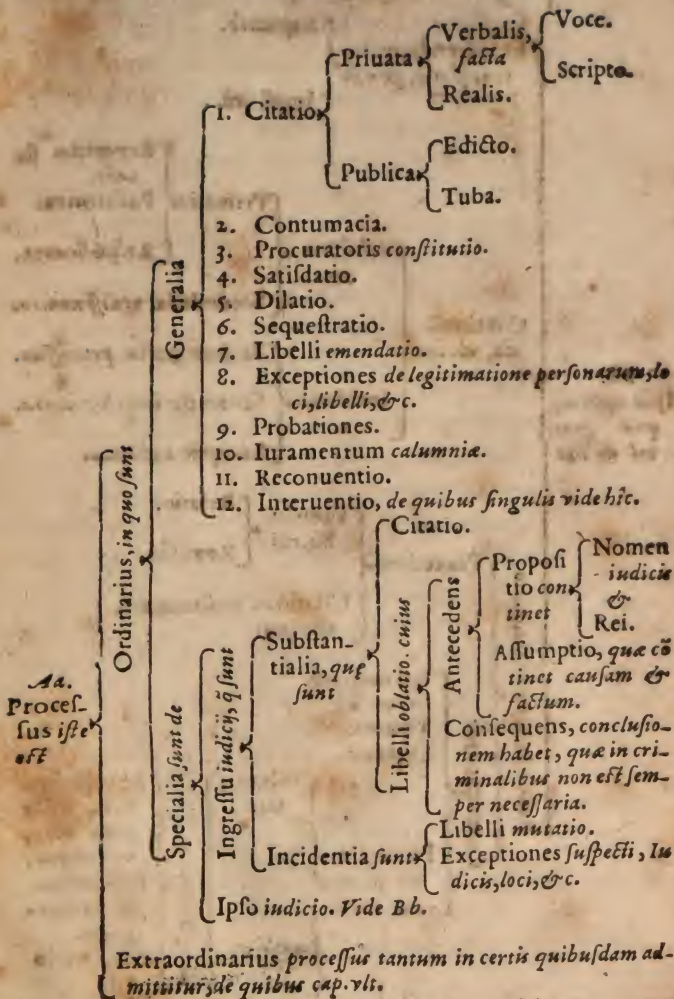 Aa.
Proceſ-
ſus iſte
eſt
Ordinarius, in quo ſunt
Generalia
1. Citatio
Priuata
Verbalis,
facta
Voce.
Scripto.
Realis.
Publica
Edicto.
Tuba.
2. Contumacia.
3. Procuratoris conſtitutio.
4. Satiſdatio.
5. Dilatio.
6. Sequeſtratio.
7. Libelli emendatio.
8. Exceptiones de legitimatione perſonarum, lo
ci, libelli, &c.
9. Probationes.
10. Iuramentum calumniæ.
11. Reconuentio.
12. Interuentio, de quibus ſingulis vide hîc.
Specialia ſunt de
Ingreſſu iudicij, q̃ ſunt
Subſtan-
tialia, quę
ſunt
Citatio.
Libelli oblatio. cuius
Antecedens
Propoſi
tio con
tinet
Nomen
iudicis
&
Rei.
Aſſumptio, quæ cō
tinet cauſam &
factum.
Conſequens, concluſio-
nem habet, quæ in cri-
minalibus non eſt ſem-
per neceſſaria.
Incidentia ſunt
Libelli mutatio.
Exceptiones ſuſpecti, Iu
dicis, loci, &c.
Ipſo iudicio. Vide Bb.
Extraordinarius proceſſus tantum in certis quibuſdam ad-
mittitur, de quibus cap. vlt.